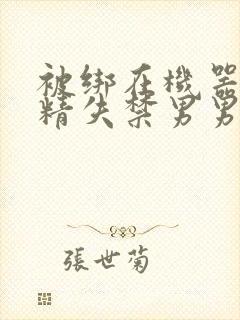 被绑在機器
精失禁男男
張世菊